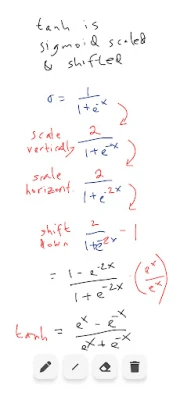 tanh is
sigmoid scaled
& shifted
σ = 1/(1+e^-x)
scale
vertically 2/(1+e^-x)
scale
horizont. 2/(1+e^-2x)
shift
down 2/(1+e^-2x) - 1
= (1-e^-2x)/(1+e^-2x) · (e^x/e^x)
tanh = (e^x - e^-x)/(e^x + e^-x)